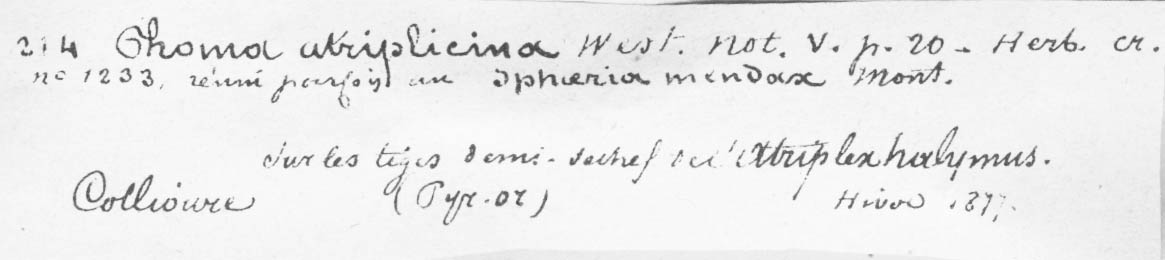 214 Phoma atriplicina West. Not. V. p. 20 - Herb. cr.
no 1233, réuni parfois au Sphaeria mendax Mont.
Sur les tiges demi-sèches de l'Atriplex halymus.
Collioure (Pyr-or) Hiver 1877.